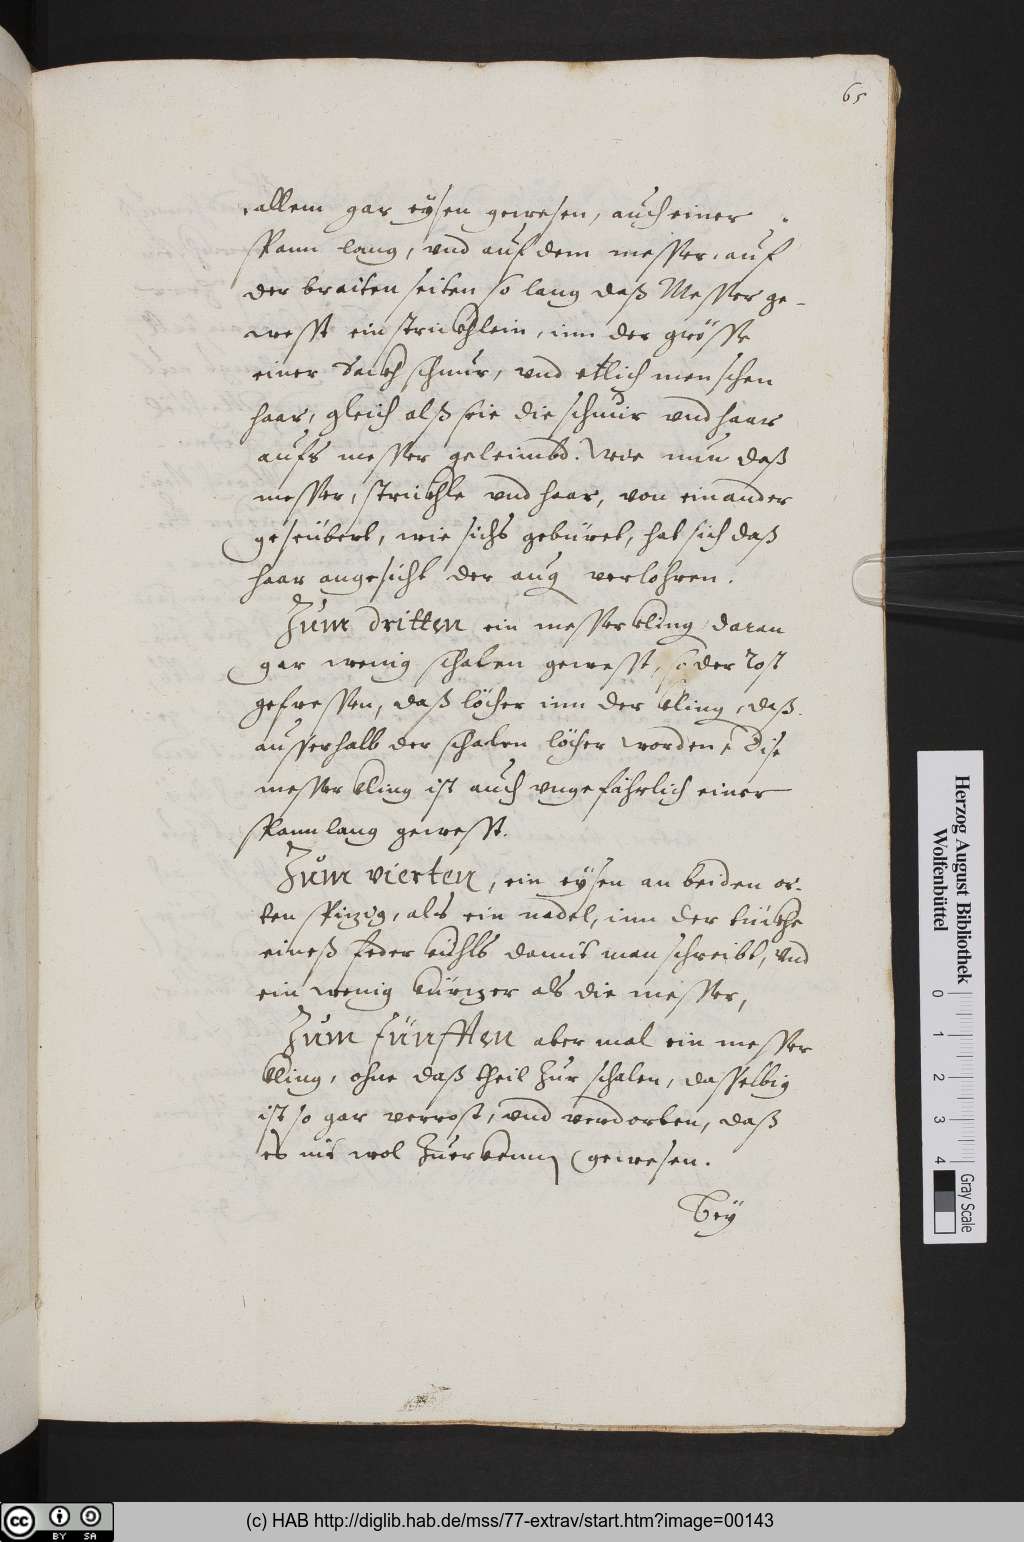 65
allem gar eysen gewesen, auch einer
spann lang, vnd auf dem messer, auf
der braiten seiten so lang daß Messer ge-
wesst ein strickhlein, inn der grösse
einer Sackh schnur, vnd etlich menschen
haar, gleich alß seie die schnur vnd haar
aufs messer geleimbd. Wie nun daß
messer, strickhle vnd haar, von einander
geseübert, wie sichs gebüret, hat sich daß
haar angesicht der aug verlohren.
Zum dritten ein messer kling daran
gar wenig schalen gewesst, so der rost
gefressen, daß löcher inn der kling, daß
ausserhalb der schalen löcher worden, Dise
messer kling ist auch vngefährlich einer
spann lang gewesst.
Zum vierten, ein eysen an beiden or-
ten spizig, als ein nadel, inn der dückhe
eineß feder kühls damit man schreibt, vnd
ein wenig kürtzer als die messer,
Zum fünfften aber mal ein messer
kling, ohne daß theil zur schalen, dasselbig
ist so gar verrost, vnd verdorben, daß
es nit wol zuerkennen gewesen.
Bey
Herzog August Bibliothek
Wolfenbüttel
0 1 2 3 4
Gray Scale
cc BY SA
(c) HAB http://diglib.hab.de/mss/77-extrav/start.htm?image=00143